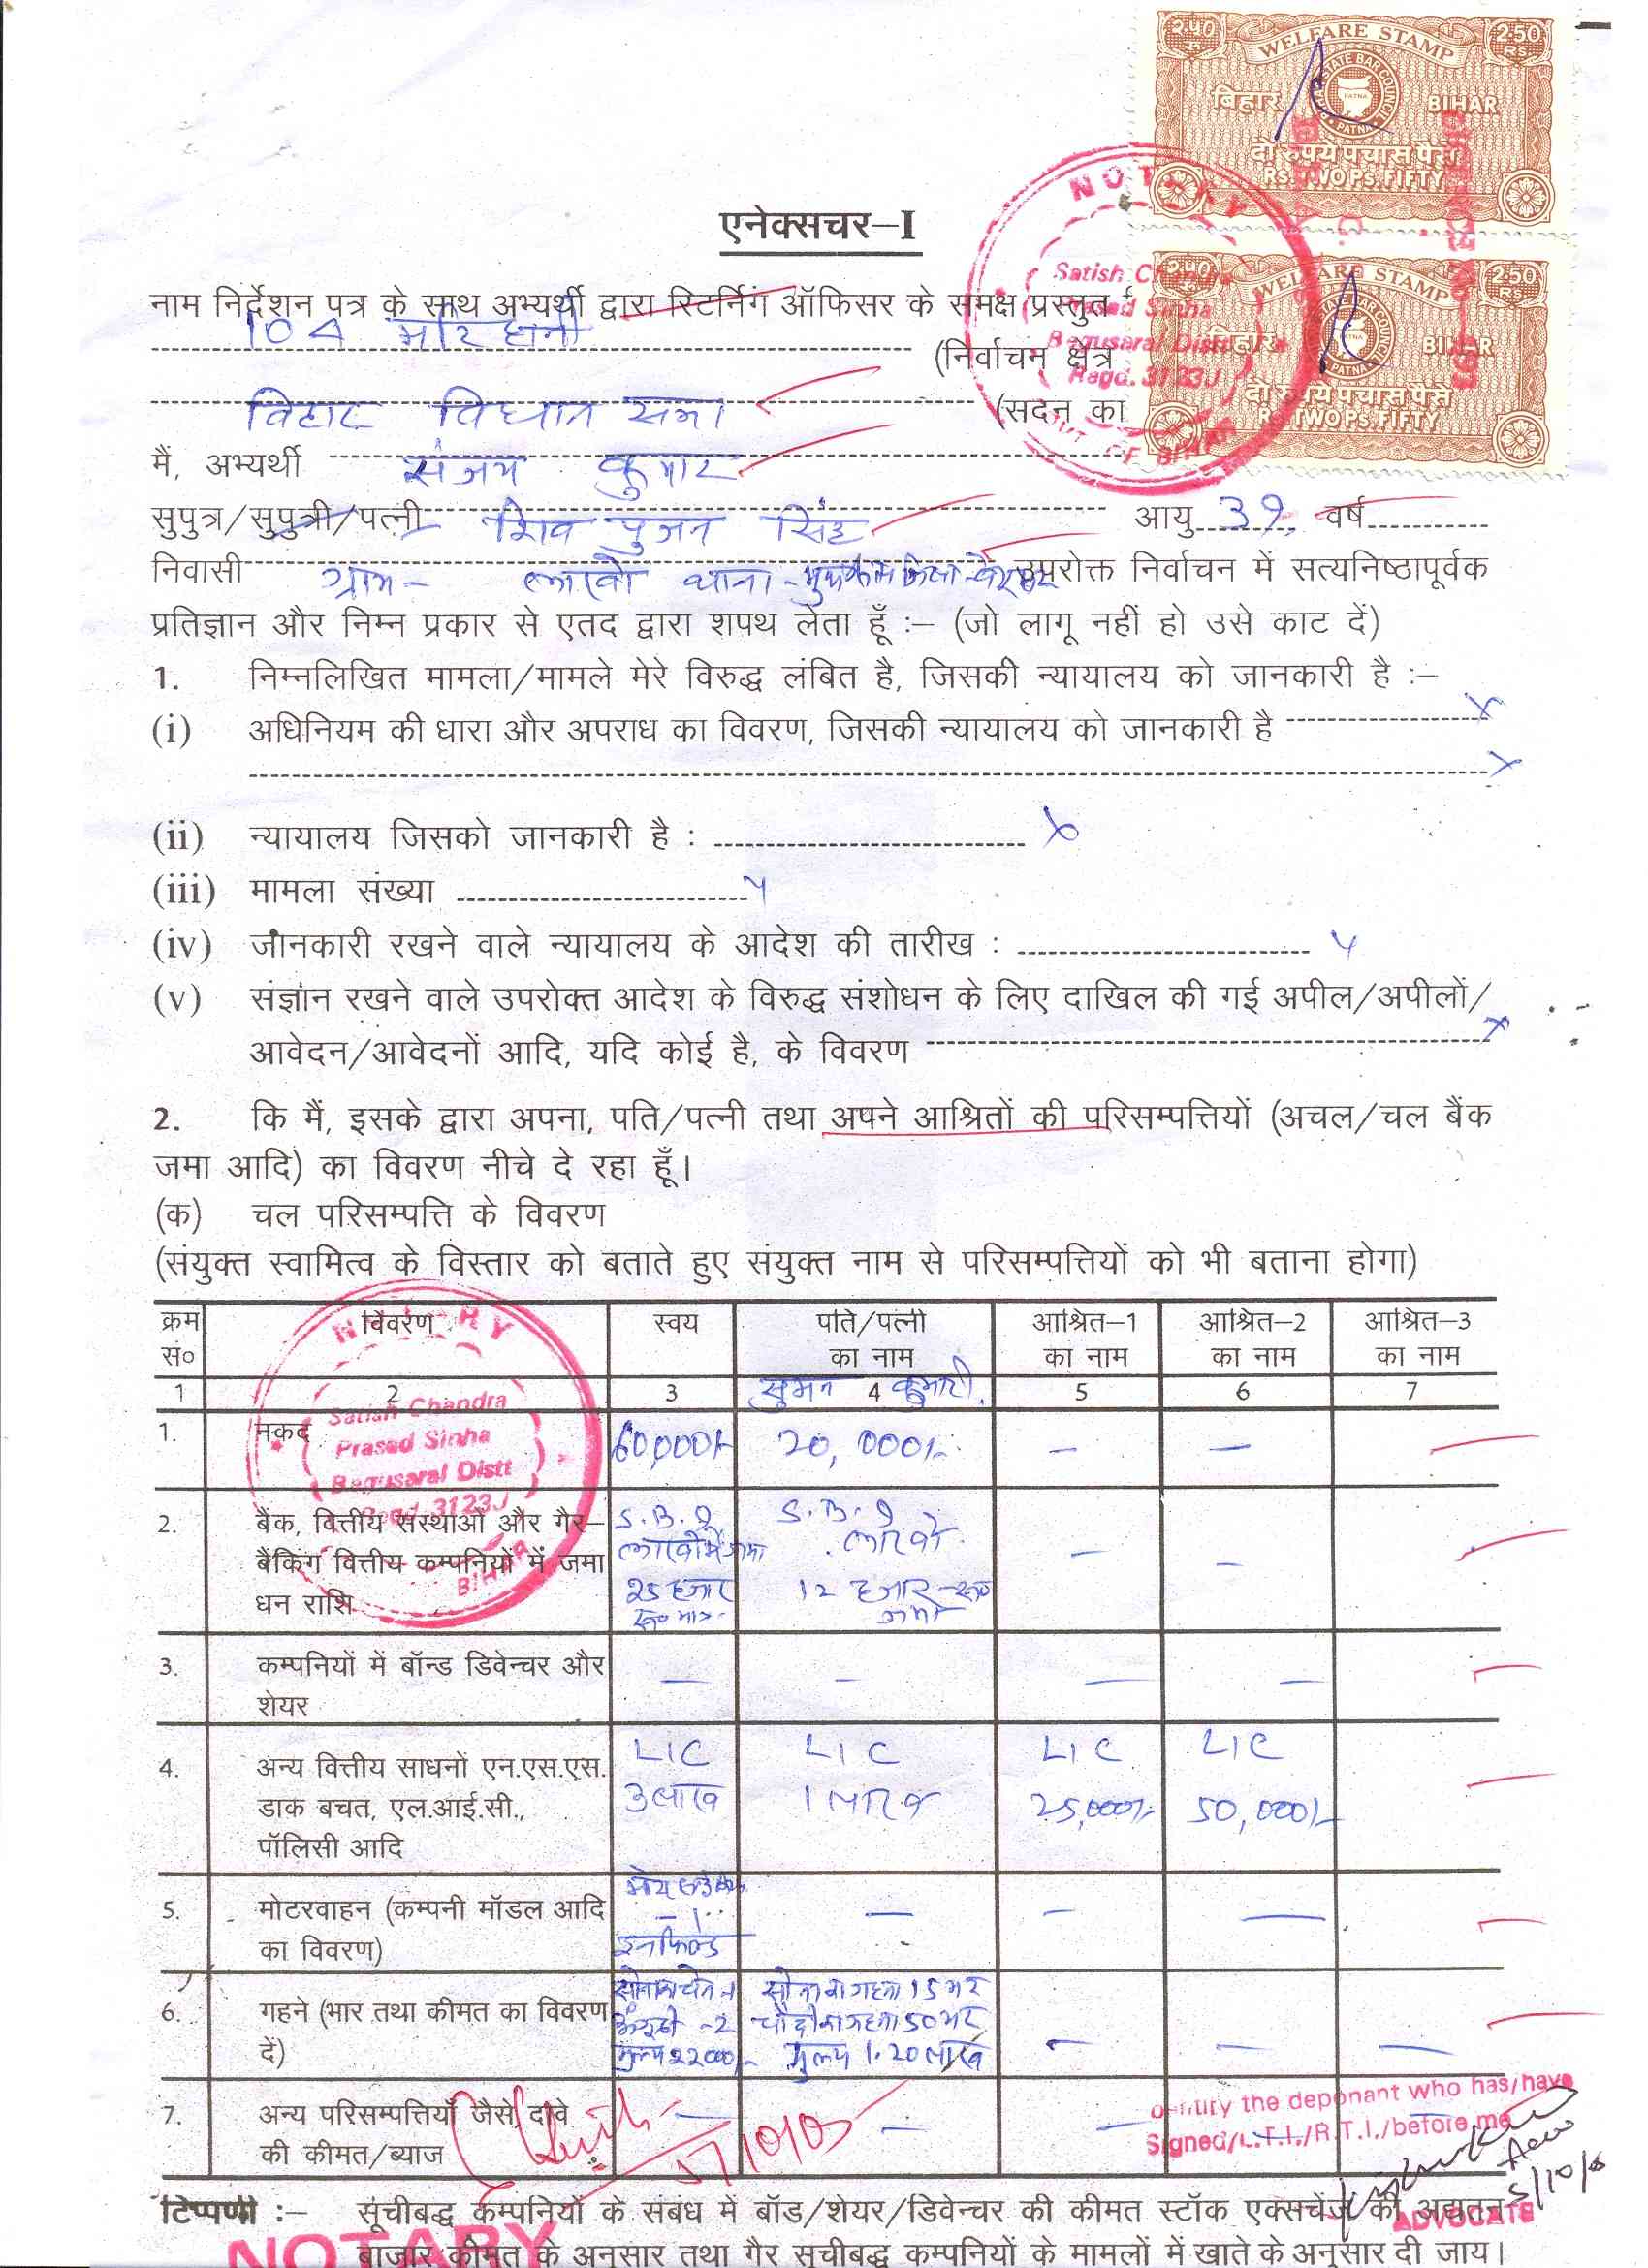 2.50 WELFARE STAMP 2.50 Rs
STATE BAR COUNCIL
बिहार PATNA BIHAR
दो रुपये पचास पैसे
Rs. TWO Ps. FIFTY
2.50 WELFARE STAMP 2.50 Rs
बिहार PATNA BIHAR
दो रुपये पचास पैसे
Rs. TWO Ps. FIFTY
NOTARY
Satish Chandra
Prasad Sinha
Begusarai Distt
Regd. 3123J
GOVT OF BIHAR
एनेक्सचर–I
नाम निर्देशन पत्र के साथ अभ्यर्थी द्वारा रिटर्निंग ऑफिसर के समक्ष प्रस्तुत
104 मटिहानी (निर्वाचन क्षेत्र
बिहार विधान सभा (सदन का
मैं, अभ्यर्थी संजय कुमार
सुपुत्र/सुपुत्री/पत्नी शिव पुजन सिंह आयु 39 वर्ष
निवासी ग्राम- लाखो थाना - उपरोक्त निर्वाचन में सत्यनिष्ठापूर्वक
प्रतिज्ञान और निम्न प्रकार से एतद द्वारा शपथ लेता हूँ :– (जो लागू नहीं हो उसे काट दें)
1. निम्नलिखित मामला/मामले मेरे विरुद्ध लंबित है, जिसकी न्यायालय को जानकारी है :–
(i) अधिनियम की धारा और अपराध का विवरण, जिसकी न्यायालय को जानकारी है x
x
(ii) न्यायालय जिसको जानकारी है : x
(iii) मामला संख्या x
(iv) जानकारी रखने वाले न्यायालय के आदेश की तारीख : x
(v) संज्ञान रखने वाले उपरोक्त आदेश के विरुद्ध संशोधन के लिए दाखिल की गई अपील/अपीलों/
आवेदन/आवेदनों आदि, यदि कोई है, के विवरण x
2. कि मैं, इसके द्वारा अपना, पति/पत्नी तथा अपने आश्रितों की परिसम्पत्तियों (अचल/चल बैंक
जमा आदि) का विवरण नीचे दे रहा हूँ।
(क) चल परिसम्पत्ति के विवरण
(संयुक्त स्वामित्व के विस्तार को बताते हुए संयुक्त नाम से परिसम्पत्तियों को भी बताना होगा)
क्रम विवरण स्वय पति/पत्नी आश्रित–1 आश्रित–2 आश्रित–3
सं० का नाम का नाम का नाम का नाम
1 2 3 सुमन 4 कुमारी 5 6 7
1. नकद 60,000/- 20,000/- — —
NOTARY
Satish Chandra
Prasad Sinha
Begusarai Distt
Regd. 3123J
BIHAR
2. बैंक, वित्तीय संस्थाओं और गैर– S.B.I S.B.I
बैंकिंग वित्तीय कम्पनियों में जमा लाखो में जमा लाखो — —
धन राशि 25 हजार 12 हजार रू०
रू० मात्र जमा
3. कम्पनियों में बॉन्ड डिवेन्चर और — — — —
शेयर
4. अन्य वित्तीय साधनों एन.एस.एस. LIC LIC LIC LIC
डाक बचत, एल.आई.सी., 3 लाख 1 लाख 25,000/- 50,000/-
पॉलिसी आदि
5. मोटरवाहन (कम्पनी मॉडल आदि — 1 — — —
का विवरण) इनफिल्ड
6. गहने (भार तथा कीमत का विवरण सोना का चेन -1 सोना का गहना 15 भर
दें) अंगूठी - 2 चाँदी का गहना 50 भर — — —
मूल्य 22000/- मूल्य 1.20 लाख
7. अन्य परिसम्पत्तियाँ जैसे दावे — — — —
की कीमत/ब्याज
5/10/05
the deponant who has/have
Signed/L.T.I./R.T.I./before me
Adv
5/10/05
ADVOCATE
टिप्पणी :– सूचीबद्ध कम्पनियों के संबंध में बॉड/शेयर/डिवेन्चर की कीमत स्टॉक एक्सचेंज की अद्यतन
NOTARY
बाजार कीमत के अनुसार तथा गैर सूचीबद्ध कम्पनियों के मामलों में खाते के अनुसार दी जाय।